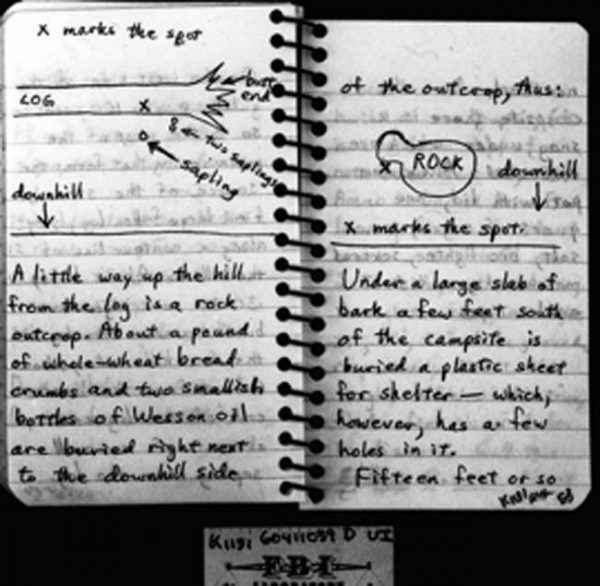 x marks the spot
butt
end
LOG
x
two saplings
sapling
downhill
A little way up the hill
from the log is a rock
outcrop. About a pound
of whole-wheat bread
crumbs and two smallish
bottles of Wesson oil
are buried right next
to the downhill side
of the outcrop, thus:
ROCK
x
downhill
x marks the spot.
Under a large slab of
bark a few feet south
of the campsite is
buried a plastic sheet
for shelter — which,
however, has a few
holes in it.
Fifteen feet or so
FBI